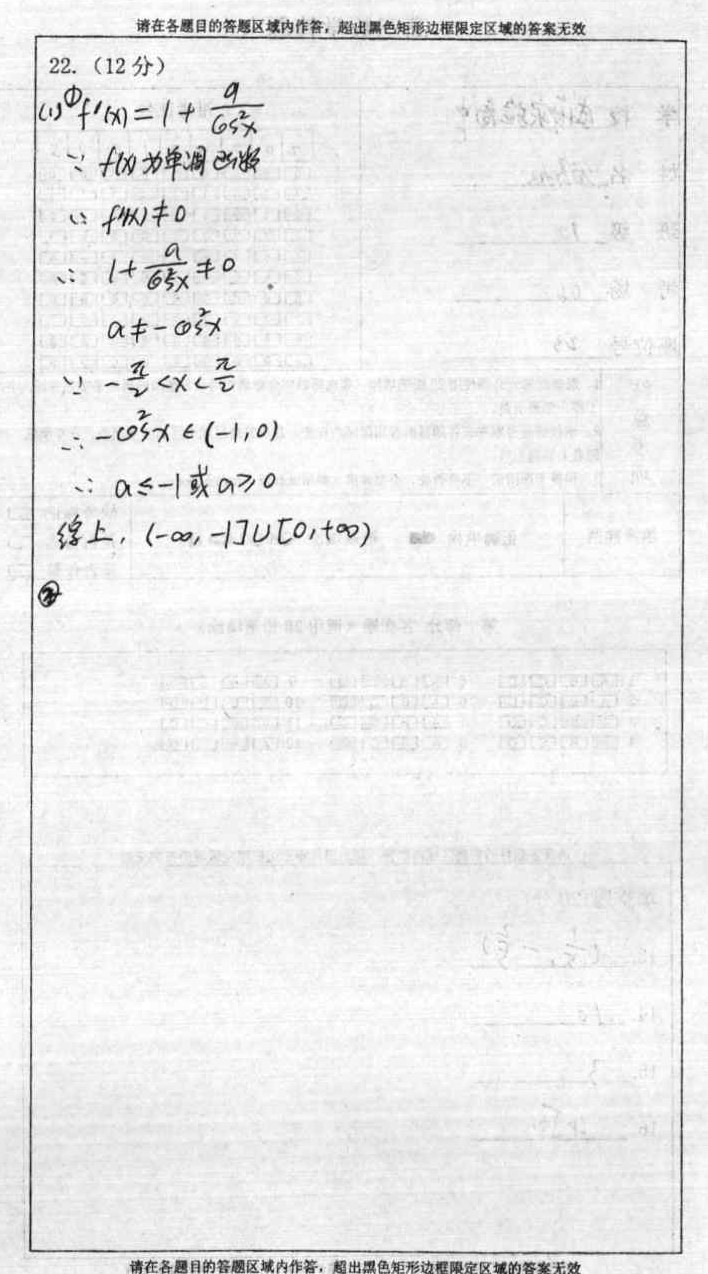 请在各题目的答题区域内作答，超出黑色矩形边框限定区域的答案无效
22.（12分）
(1) ① f'(x)=1+a/cos²x
∵ f(x)为单调函数
∴ f'(x)≠0
∴ 1+a/cos²x≠0
a≠-cos²x
∵ -π/2<x<π/2
∴ -cos²x∈(-1,0)
∴ a≤-1或a≥0
综上，(-∞,-1]∪[0,+∞)
②
请在各题目的答题区域内作答，超出黑色矩形边框限定区域的答案无效